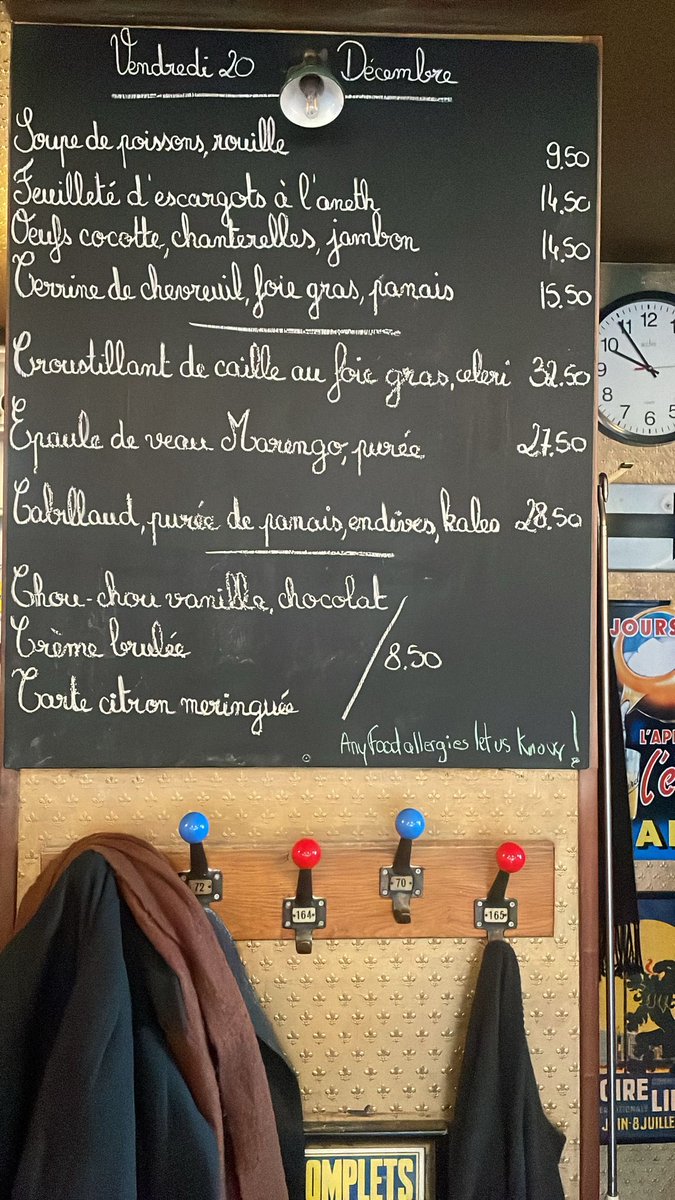 Vendredi 20 Décembre
Soupe de poissons, rouille 9.50
Feuilleté d'escargots à l'aneth 14.50
Œufs cocotte, chanterelles, jambon 14.50
Terrine de chevreuil, foie gras, panais 15.50
Croustillant de caille au foie gras, celeri 32.50
Epaule de veau Marengo, purée 27.50
Cabillaud, purée de panais, endives, kales 28.50
Chou-chou vanille, chocolat
Crème brulée 8.50
Tarte citron meringuée
Any Food allergies let us know!
11 12 1
10
9
8
7 6 5
JOURS
L'AP
l'e
A
72 164 70 165
OIRE LI
JIN-8 JUILLE
OMPLETS